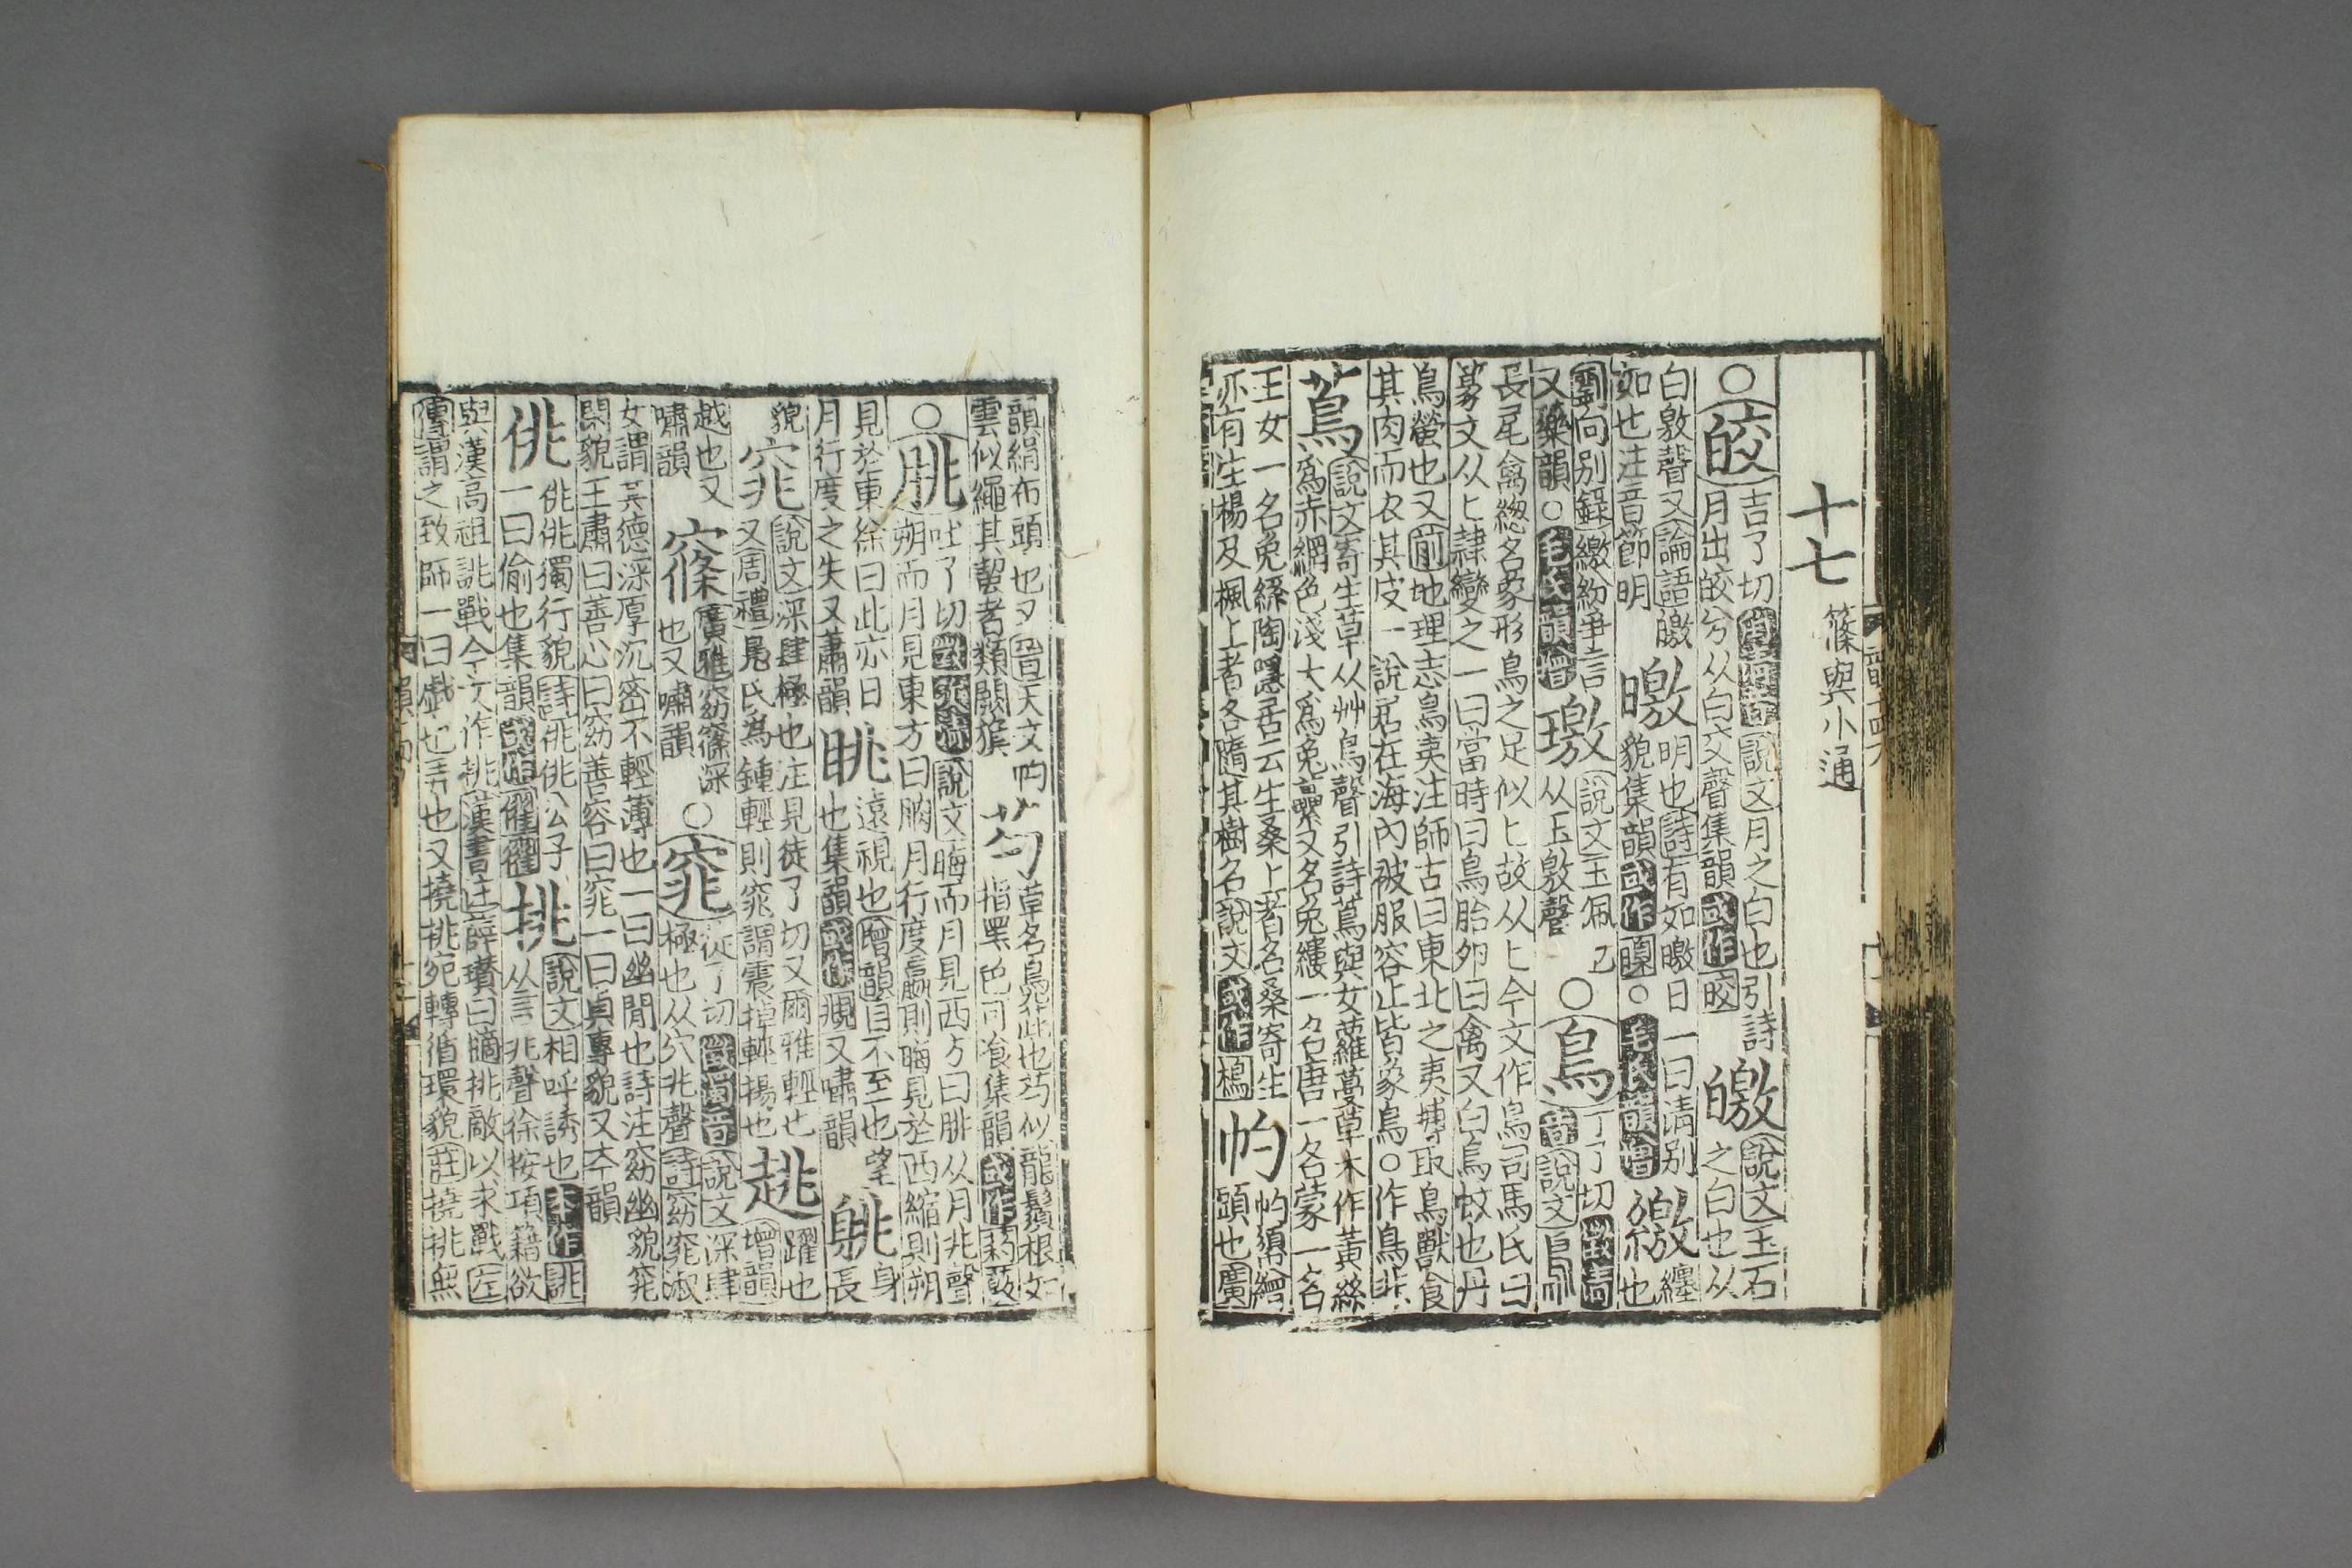 十七 篠與小通
○皎 吉了切 說文月之白也引詩
月出皎兮从白交聲集韻或作晈
皦 說文玉石
之白也从
白敫聲又論語皦
如也注音節明
曒 明也詩有如曒日一曰清别
貌集韻或作㬠○毛氏韻增
繳 纏
也
劉向别錄繳紛爭言
又藥韻○毛氏韻增
璬 說文玉佩
从玉敫聲
○鳥 丁了切徵清
音說文鳥
長尾禽緫名象形鳥之足似匕故从匕今文作鳥司馬氏曰
篆文从匕隷變之一曰當時曰鳥胎卵曰禽又白鳥蚊也丹
鳥螢也又前地理志鳥夷注師古曰東北之夷搏取鳥獸食
其肉而衣其皮一說居在海內被服容止皆象鳥○作鳥非
蔦 說文寄生草从艸鳥聲引詩蔦與女蘿蔓草木作黃絲
爲赤網色淺大爲兔纍又名兔縷一名唐一名蒙一名
王女一名兔絲陶隱居云生桑上者名桑寄生
亦有生楊及楓上者各隨其樹名說文或作樢
頭也廣
韻絹布頭也又晉天文
雲似繩其蜇者類闕旗
芍 草名鳧茈也芍似龍鬚根如
指黑色可食集韻或作
○朓 吐了切徵次清說文晦而月見西方曰朓从月兆聲
朔而月見東方曰朒月行度贏則晦見於西縮則朔
見於東徐曰此亦日
月行度之失又蕭韻
眺 遠視也增韻目不至也望
也集韻或作覜又嘯韻
䠷 身
長
貌
窕 說文深肆極也注見徒了切又爾雅輕也
又周禮鳧氏爲鍾輕則窕謂震掉輕揚也
趒 躍也
增韻
越也又
嘯韻
窱 廣雅窈窱深
也又嘯韻
○窕 徒了切徵濁音說文深肆
極也从穴兆聲詩窈窕淑
女謂其德深厚沉密不輕薄也一曰幽閒也詩注窈幽貌窕
閑貌王肅曰善心曰窈善容曰窕一曰貞專貌又本韻
佻 佻佻獨行貌詩佻佻公子
一曰偷也集韻或作嬥
挑 說文相呼誘也本作誂
从言兆聲徐按項籍欲
與漢高祖誂戰今文作挑漢書注薛瓚曰擿挑敵以求戰左
傳謂之致師一曰戲也弄也又撓挑宛轉循環貌莊撓挑無